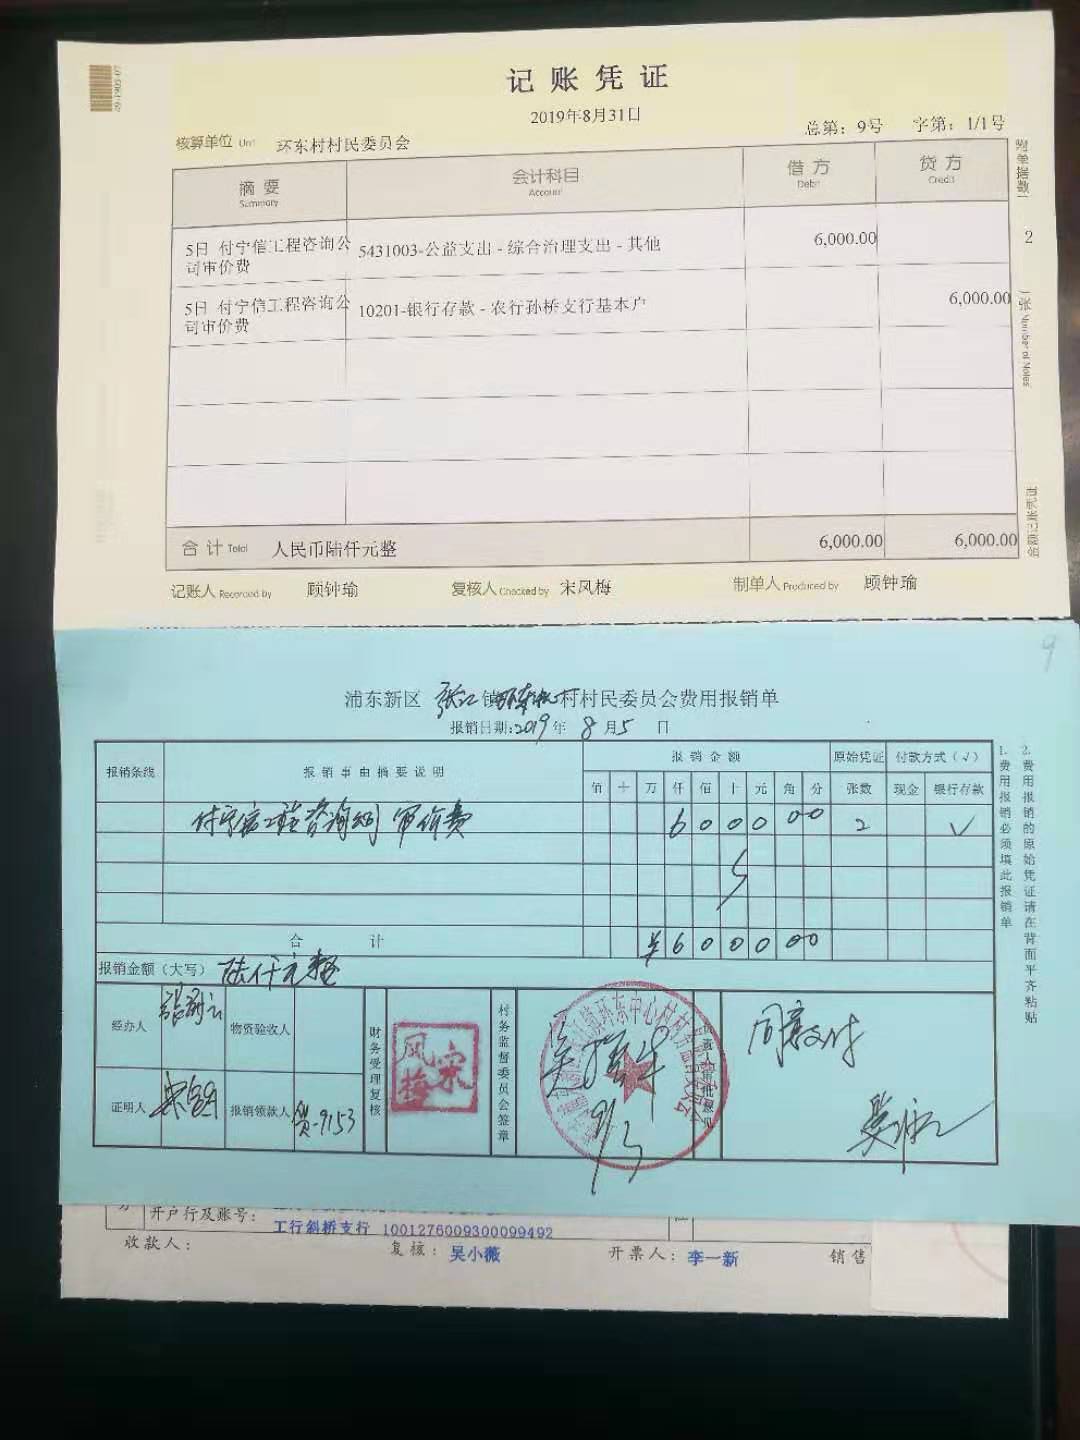 记账凭证
2019年8月31日
核算单位 Unit 环东村村民委员会 总第：9号 字第：1/1号
摘要 会计科目 借方 贷方
Summary Account Debit Credit
5日 付宁信工程咨询公 5431003-公益支出 - 综合治理支出 - 其他 6,000.00
司审价费
5日 付宁信工程咨询公 10201-银行存款 - 农行孙桥支行基本户 6,000.00
司审价费
合计 Total 人民币陆仟元整 6,000.00 6,000.00
记账人 Recorded by 顾钟瑜 复核人 Checked by 宋风梅 制单人 Produced by 顾钟瑜
附单据数 2 张 Number of Notes
金额记账凭证
9
浦东新区 张江 镇 环东中心 村村民委员会费用报销单
报销日期:2019 年 8 月 5 日
报销条线 报销事由摘要说明 报销金额 原始凭证 付款方式（√）
佰 十 万 仟 佰 十 元 角 分 张数 现金 银行存款
付宁信工程咨询公司 审价费 6 0 0 0 0 0 2 √
合计 ¥ 6 0 0 0 0 0
报销金额（大写） 陆仟元整
经办人 物资验收人 财务受理复核 风梅 宋 村务监督委员会签章 同意支付
证明人 报销领款人 贷-9153
9/3
镇环东中心村村务监督委员会
1.费用报销必须填此报销单
2.费用报销的原始凭证请在背面平齐粘贴
开户行及账号： 工行斜桥支行 1001276009300099492
收款人： 复核： 吴小薇 开票人： 李一新 销售